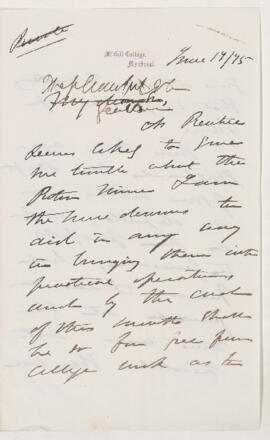 Private
McGill College,
Montreal.
June 19/75
Gentlemen
As Prentice
seems likely to give
me trouble about the
I am
the more desirous to
aid in any way
in bringing them into
practical operations
and by the end
of this month shall
be so far free from
College work as to